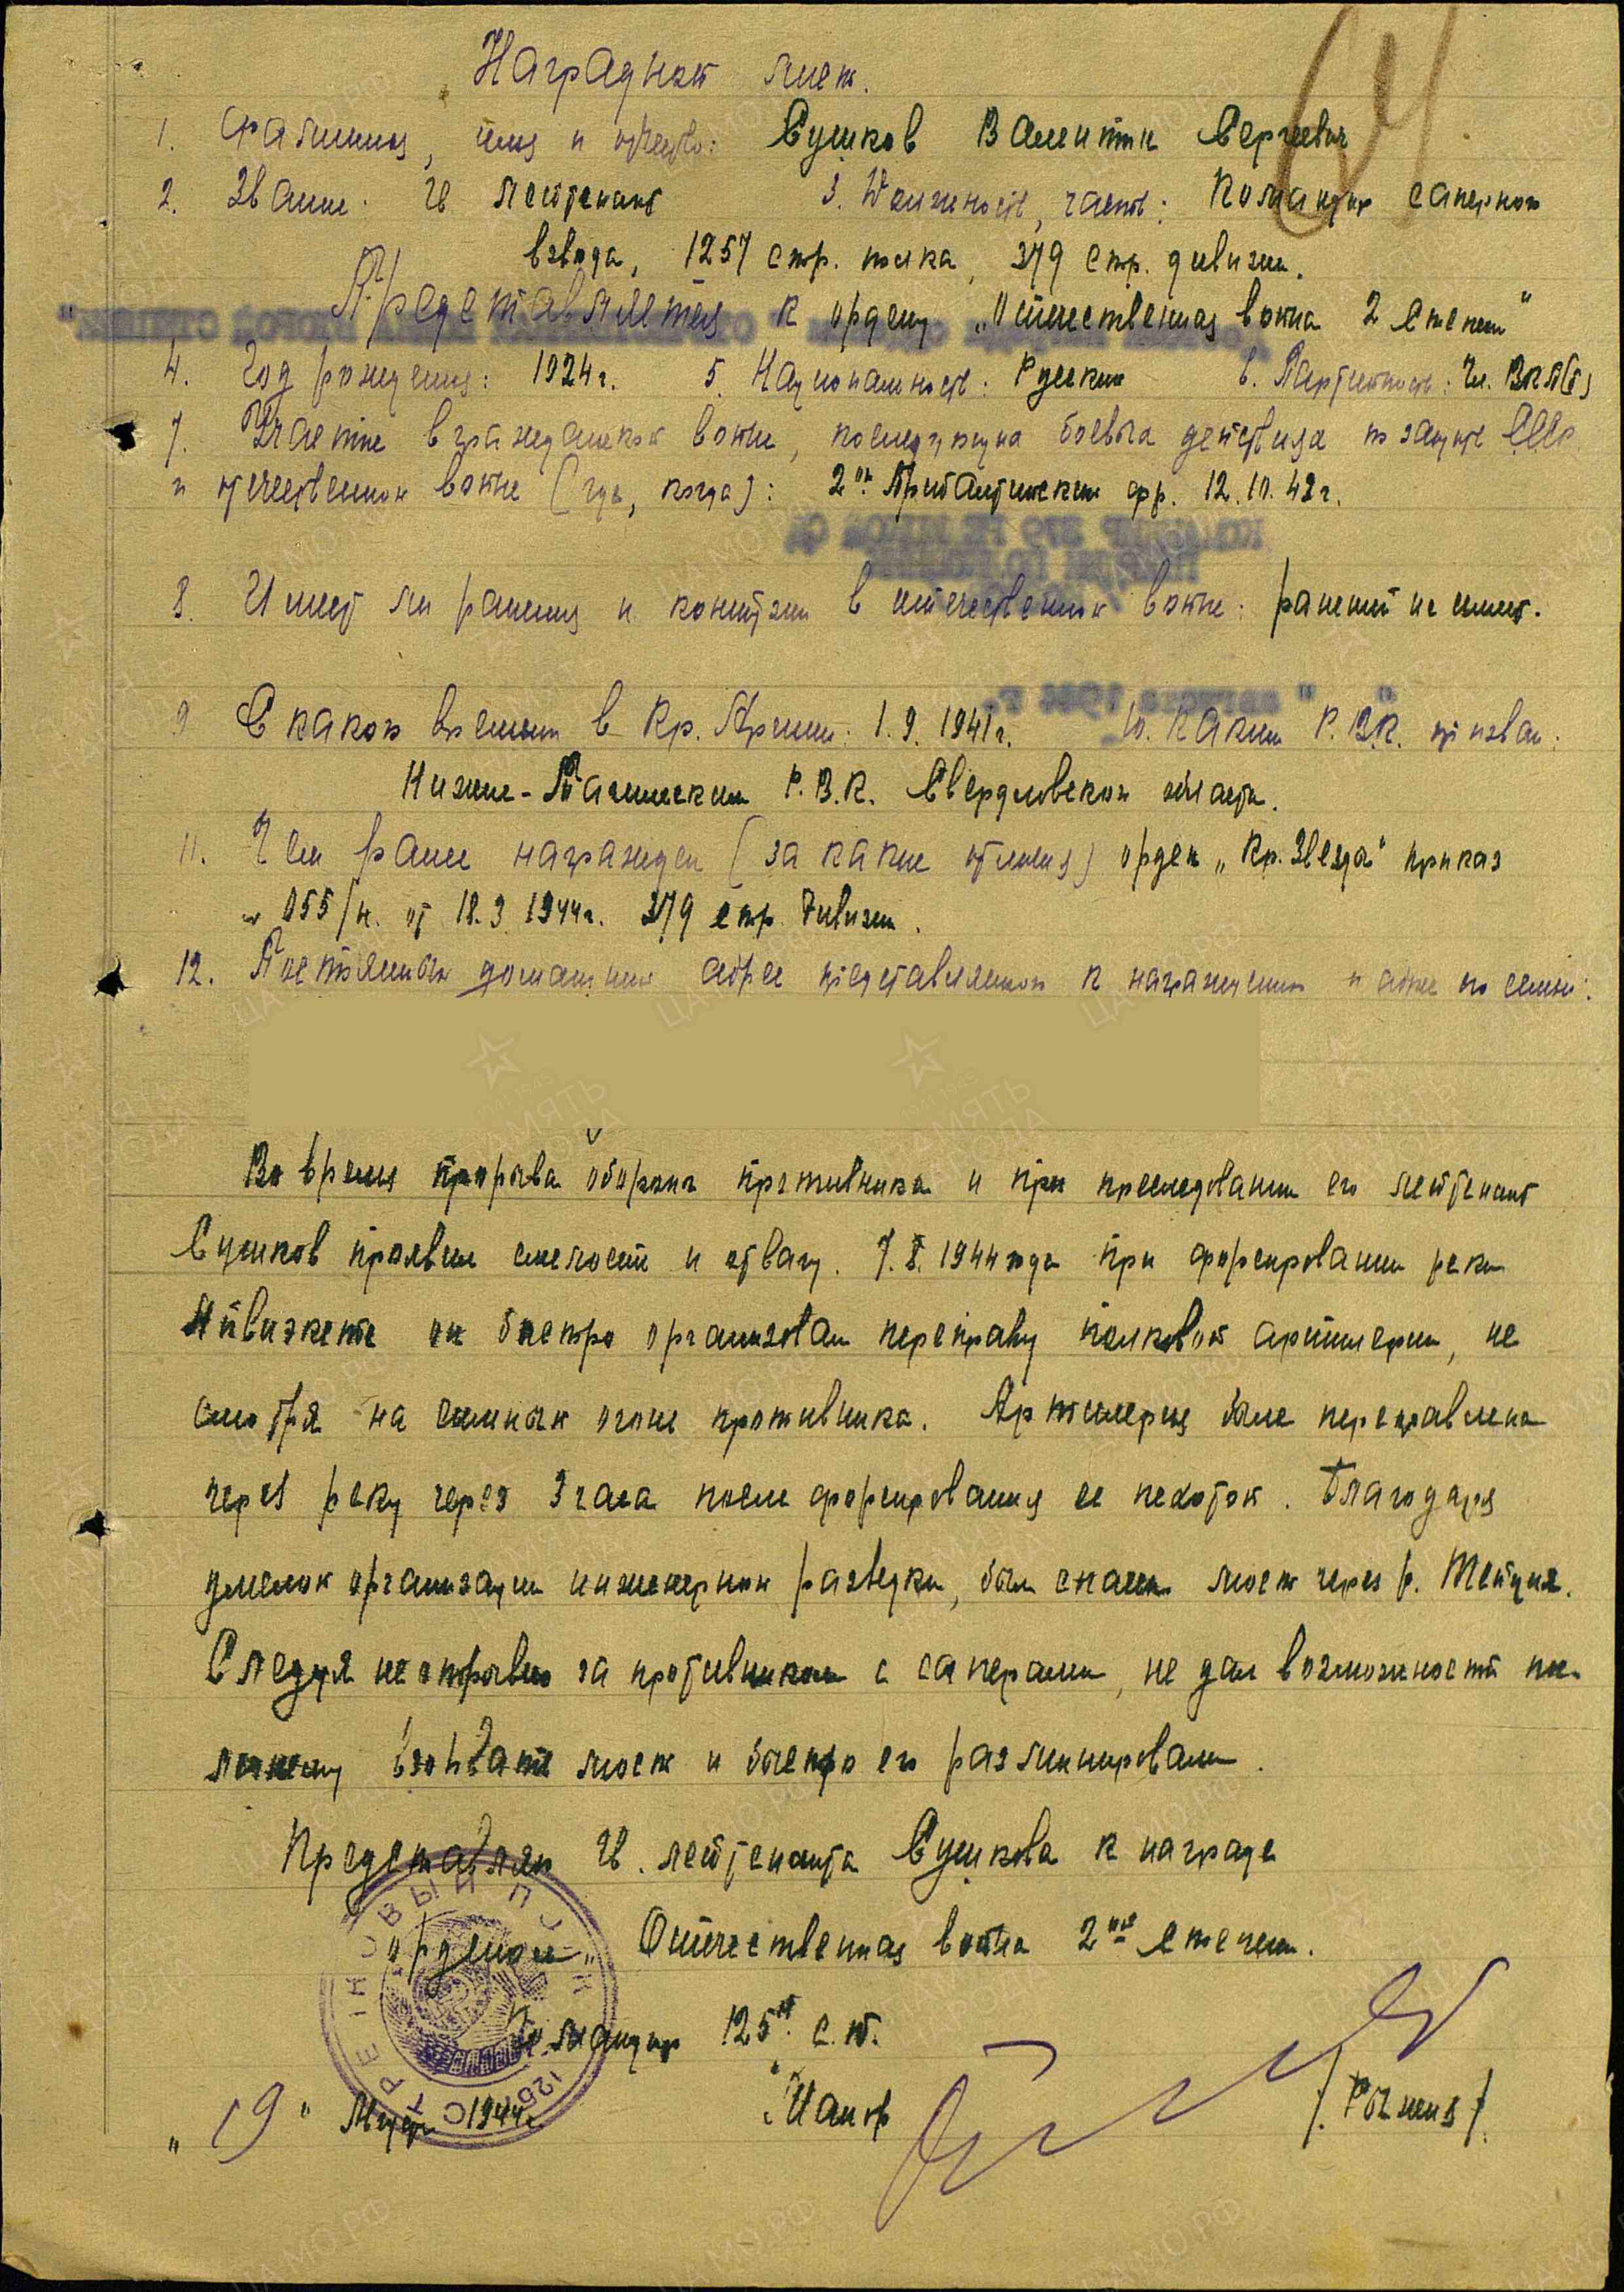 Наградной лист.
1. Фамилия, имя и отчество: Сушков Валентин Сергеевич
2. Звание: Гв. лейтенант 3. Должность, часть: Командир саперного
взвода, 1257 стр. полка, 379 стр. дивизии.
Представляется к ордену „Отечественная война 2 степени"
4. Год рождения: 1924 г. 5. Национальность: Русский 6. Партийность: Чл. ВКП(б)
7. Участие в гражданской войне, последующих боевых действиях по защите СССР
и отечественной войне (где, когда): 2ой Прибалтийский фр. 12.10.42 г.
8. Имеет ли ранения и контузии в отечественной войне: ранений не имеет.
9 С какого времени в Кр. Армии: 1.9.1941 г. 10. Каким Р.В.К. призван:
Нижне-Тагильским Р.В.К. Свердловской области.
11. Чем ранее награжден (за какие отличия) орден „Кр. Звезда" приказ
055/н. от 18.3.1944 г. 379 стр. дивизии.
12. Постоянный домашний адрес представляемого к награждению и адрес по семьи:
Во время прорыва обороны противника и при преследовании его лейтенант
Сушков проявил смелость и отвагу. 7.8.1944 года при форсировании реки
он быстро организовал переправу полковой артиллерии, не
смотря на сильный огонь противника. Артиллерия была переправлена
через реку через 3 часа после форсирования ее пехотой. Благодаря
умелой организации инженерной разведки, был спасен мост через р.
Следуя неотрывно за противником с саперами, не дал возможности по-
следнему взорвать мост и быстро его разминировали.
Представляю Гв. лейтенанта Сушкова к награде
орденом „Отечественная война 2ой степени.
Командир 125 с.п.
„19" 1944 г. Майор
СТРЕЛКОВЫЙ ПОЛК
1257